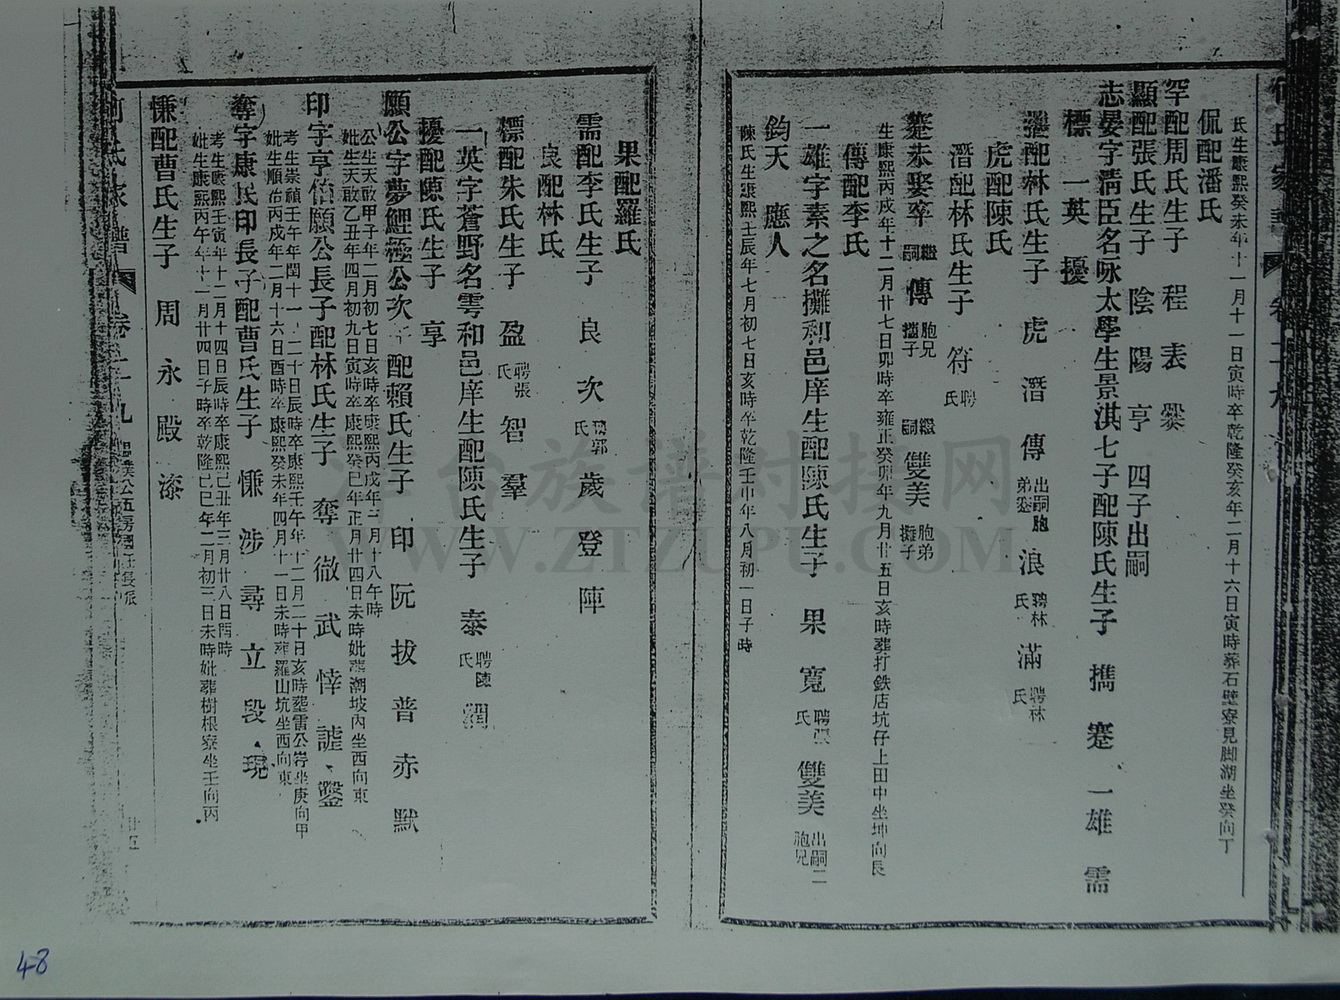 氏家譜
氏生康熙癸未年十一月十一日寅時卒乾隆癸亥年二月十六日寅時葬石壁寮見脚湖坐癸向丁
侃配潘氏
罕配周氏生子 程 表 爨
顯配張氏生子 陰 陽 亨 四子出嗣
志晏字清臣名咏太學生景淇七子配陳氏生子 擕 蹇 一雄 需
標 一英 擾
配林氏生子 虎 潛 傳 出嗣胞弟蹇 浪 聘林氏 滿 聘林氏
虎配陳氏
潛配林氏生子 符 聘氏
蹇未娶卒 繼嗣 傳 胞兄子 繼嗣 雙美 胞弟子
生康熙丙戌年十二月廿七日卯時卒雍正癸卯年九月廿五日亥時葬打鉄店坑仔上田中坐坤向艮
傳配李氏
一雄字素之名攤利邑庠生配陳氏生子 果 寬 聘張氏 雙美 出嗣二胞兄
鈞天 應人
陳氏生康熙壬辰年七月初七日亥時卒乾隆壬申年八月初一日子時
果配羅氏
需配李氏生子 良 次 聘郭氏 歲 登 陣
良配林氏
標配朱氏生子 盈 聘張氏 智 羣
一英字蒼野名雩和邑庠生配陳氏生子 泰 聘陳氏 潤
擾配陳氏生子 享
願公字夢鯉極公次子配賴氏生子 印 阮 拔 普 赤 默
公生天啟甲子年二月初七日亥時卒康熙丙戌年三月十八午時
妣生天啟乙丑年四月初九日寅時卒康熙癸巳年正月廿四日未時妣葬潮坡內坐西向東
印字亨伯願公長子配林氏生子 奪 微 武 悻 謔 鑿
考生崇禎壬午年閏十一 二十日辰時卒康熙壬午年十二月二十日亥時塟雷公崎坐庚向甲
妣生順治丙戌年二月十六日酉時卒康熙癸未年四月十一日未時葬羅山坑坐西向東
奪字康民印長子配曹氏生子 慊 涉 尋 立 段 現
考生康熙壬寅年十二月十四日辰時卒康熙己丑年三月廿八日酉時
妣生康熙丙午年十一月廿四日子時卒乾隆己巳年二月初三日未時妣葬樹根寮坐壬向丙
慊配曹氏生子 周 永 殿 漆
氏家譜 卷二九
廿五
族譜对接网
WWW.ZTZUPU.COM
48